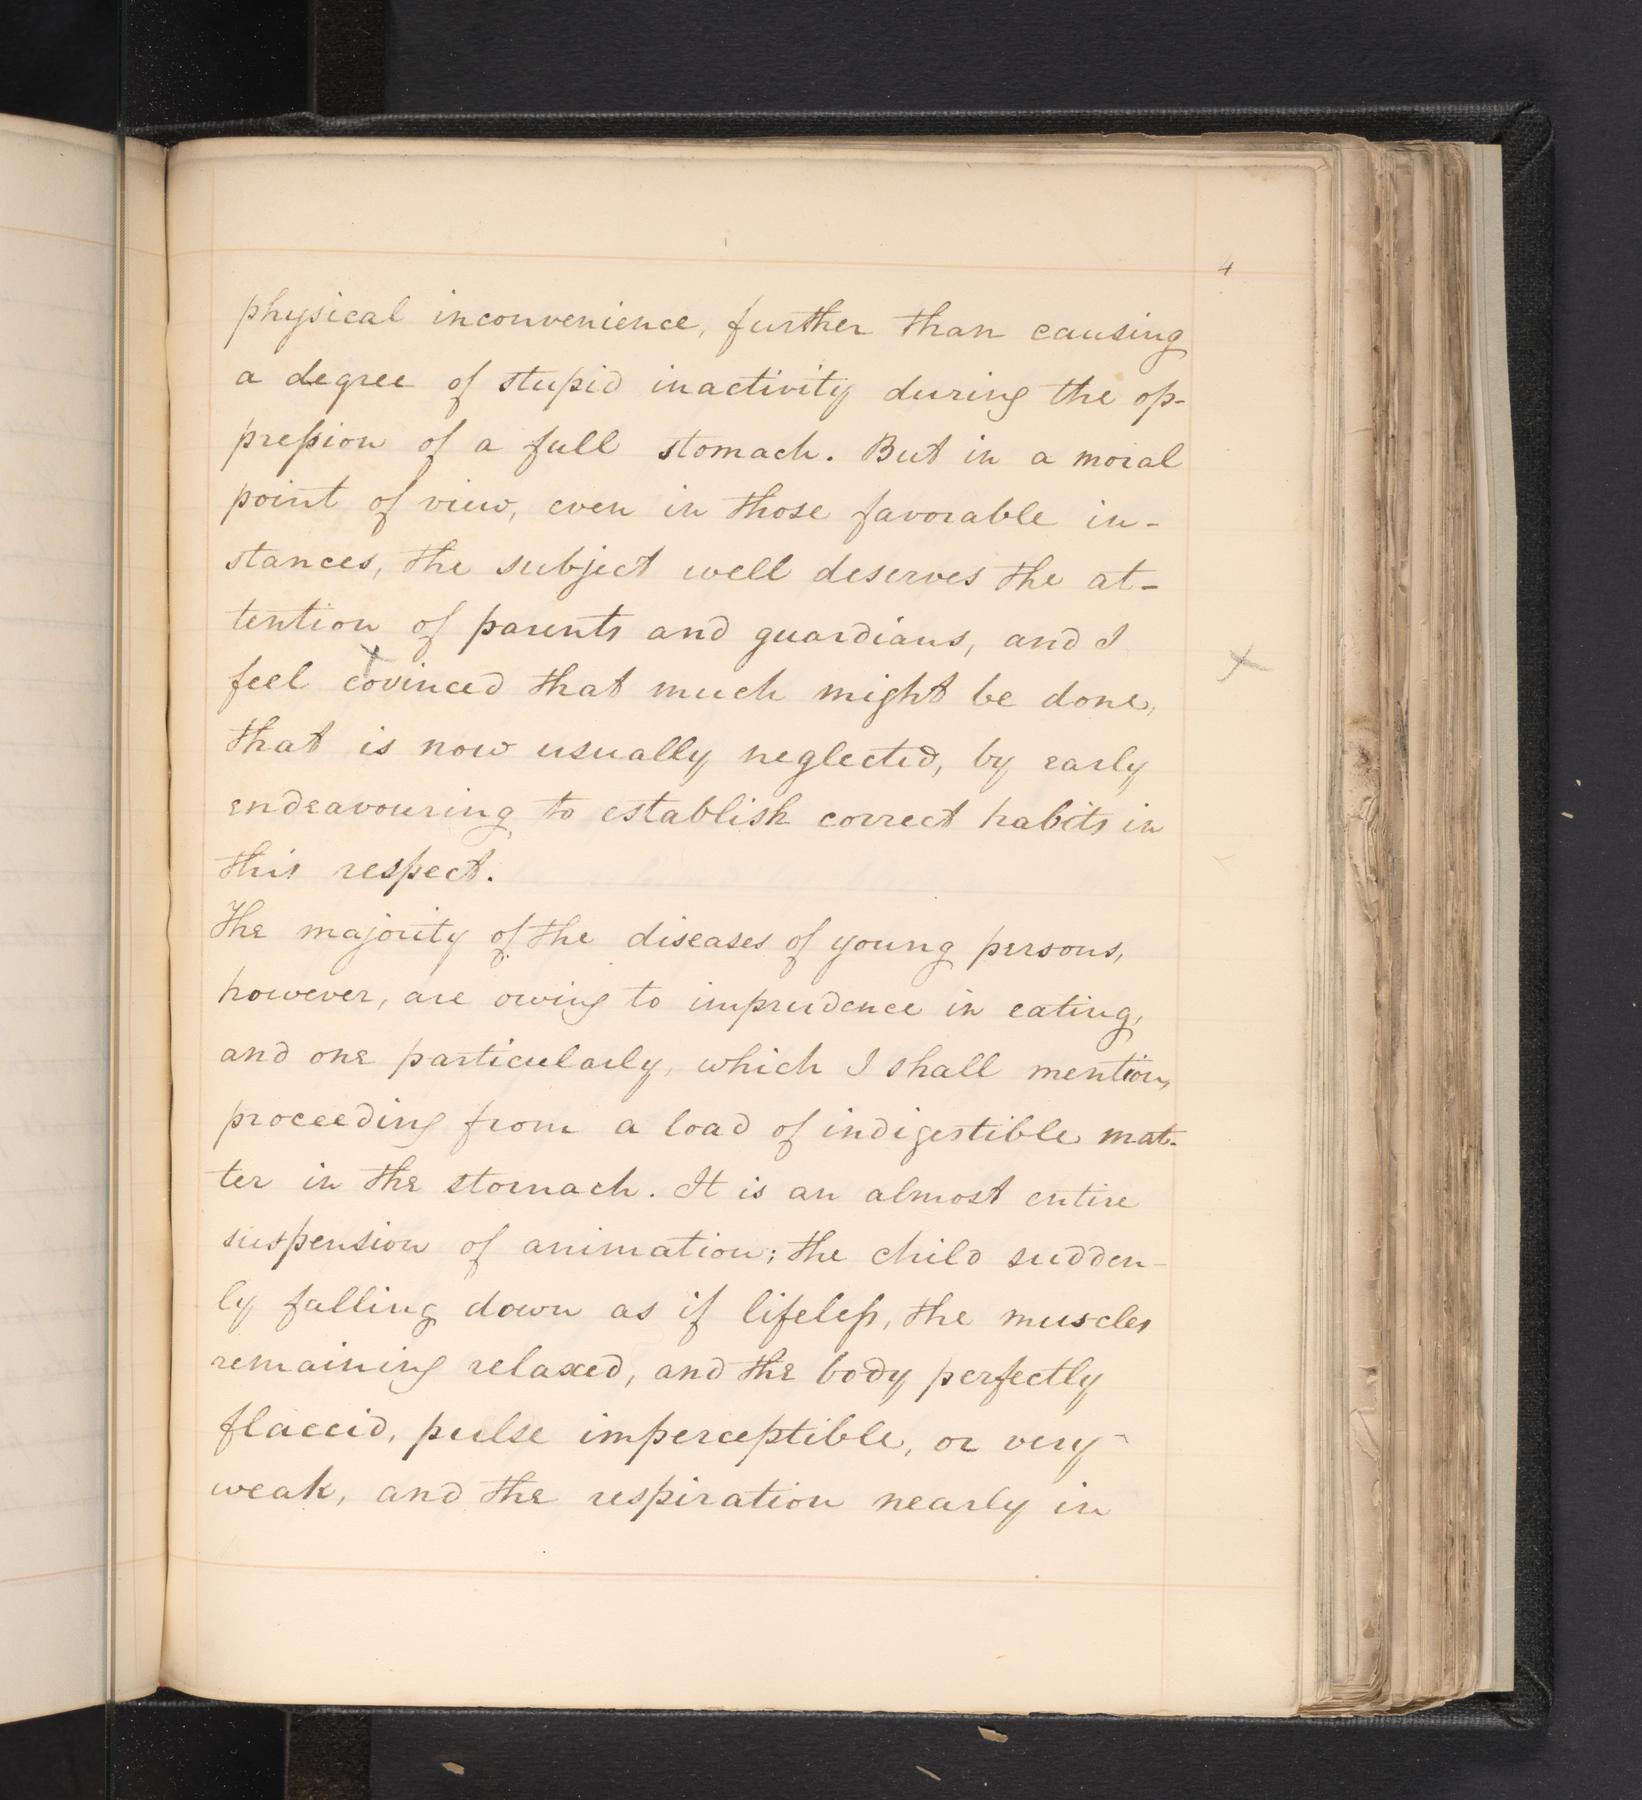 4
physical inconvenience, further than causing
a degree of stupid inactivity during the op-
pression of a full stomach. But in a moral
point of view, even in those favorable in-
stances, the subject well deserves the at-
tention of parents and guardians, and I
x
feel covinced that much might be done, x
that is now usually neglected, by early
endeavouring to establish correct habits in
this respect.
The majority of the diseases of young persons,
however, are owing to imprudence in eating,
and one particularly, which I shall mention,
proceeding from a load of indigestible mat-
ter in the stomach. It is an almost entire
suspension of animation; the child sudden-
ly falling down as if lifeless, the muscles
remaining relaxed, and the body perfectly
flaccid, pulse imperceptible, or very
weak, and the respiration nearly in